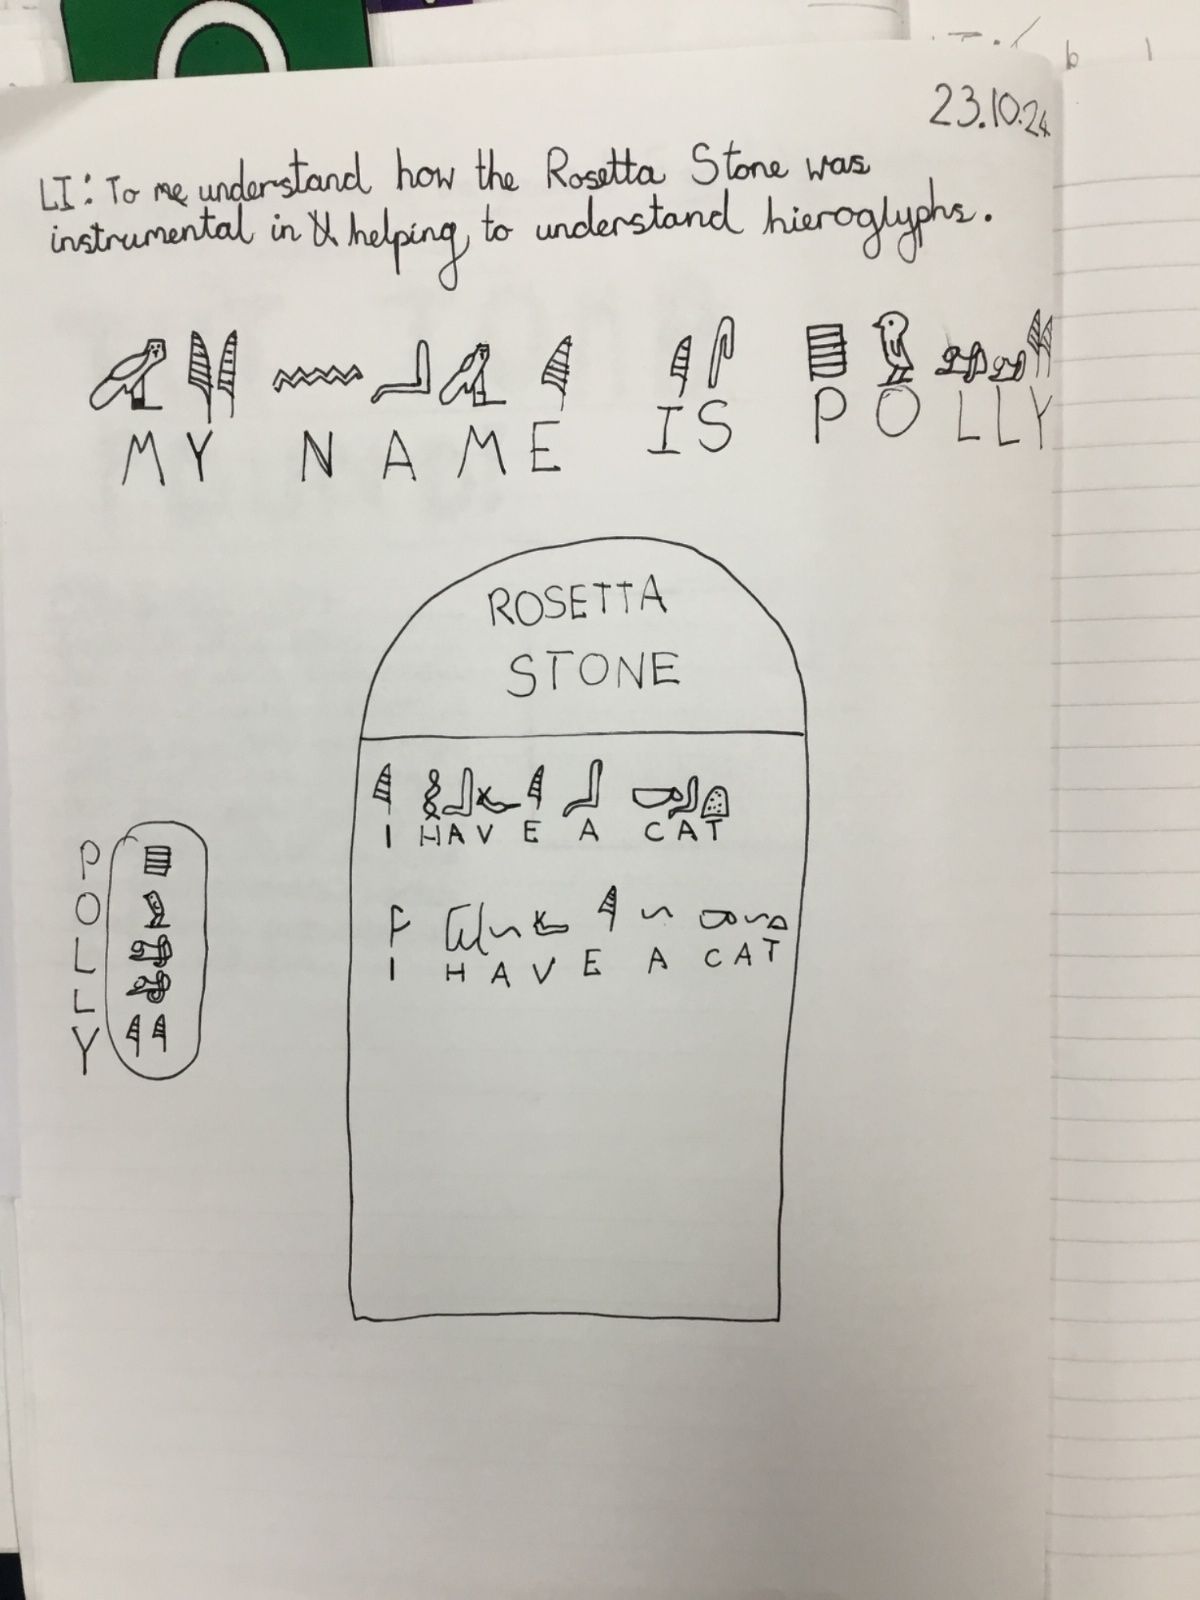 23.10.24
LI: To me understand how the Rosetta Stone was
instrumental in helping to understand hieroglyphs.
MY NAME IS POLLY
ROSETTA
STONE
I HAVE A CAT
I HAVE A CAT
P
O
L
L
Y